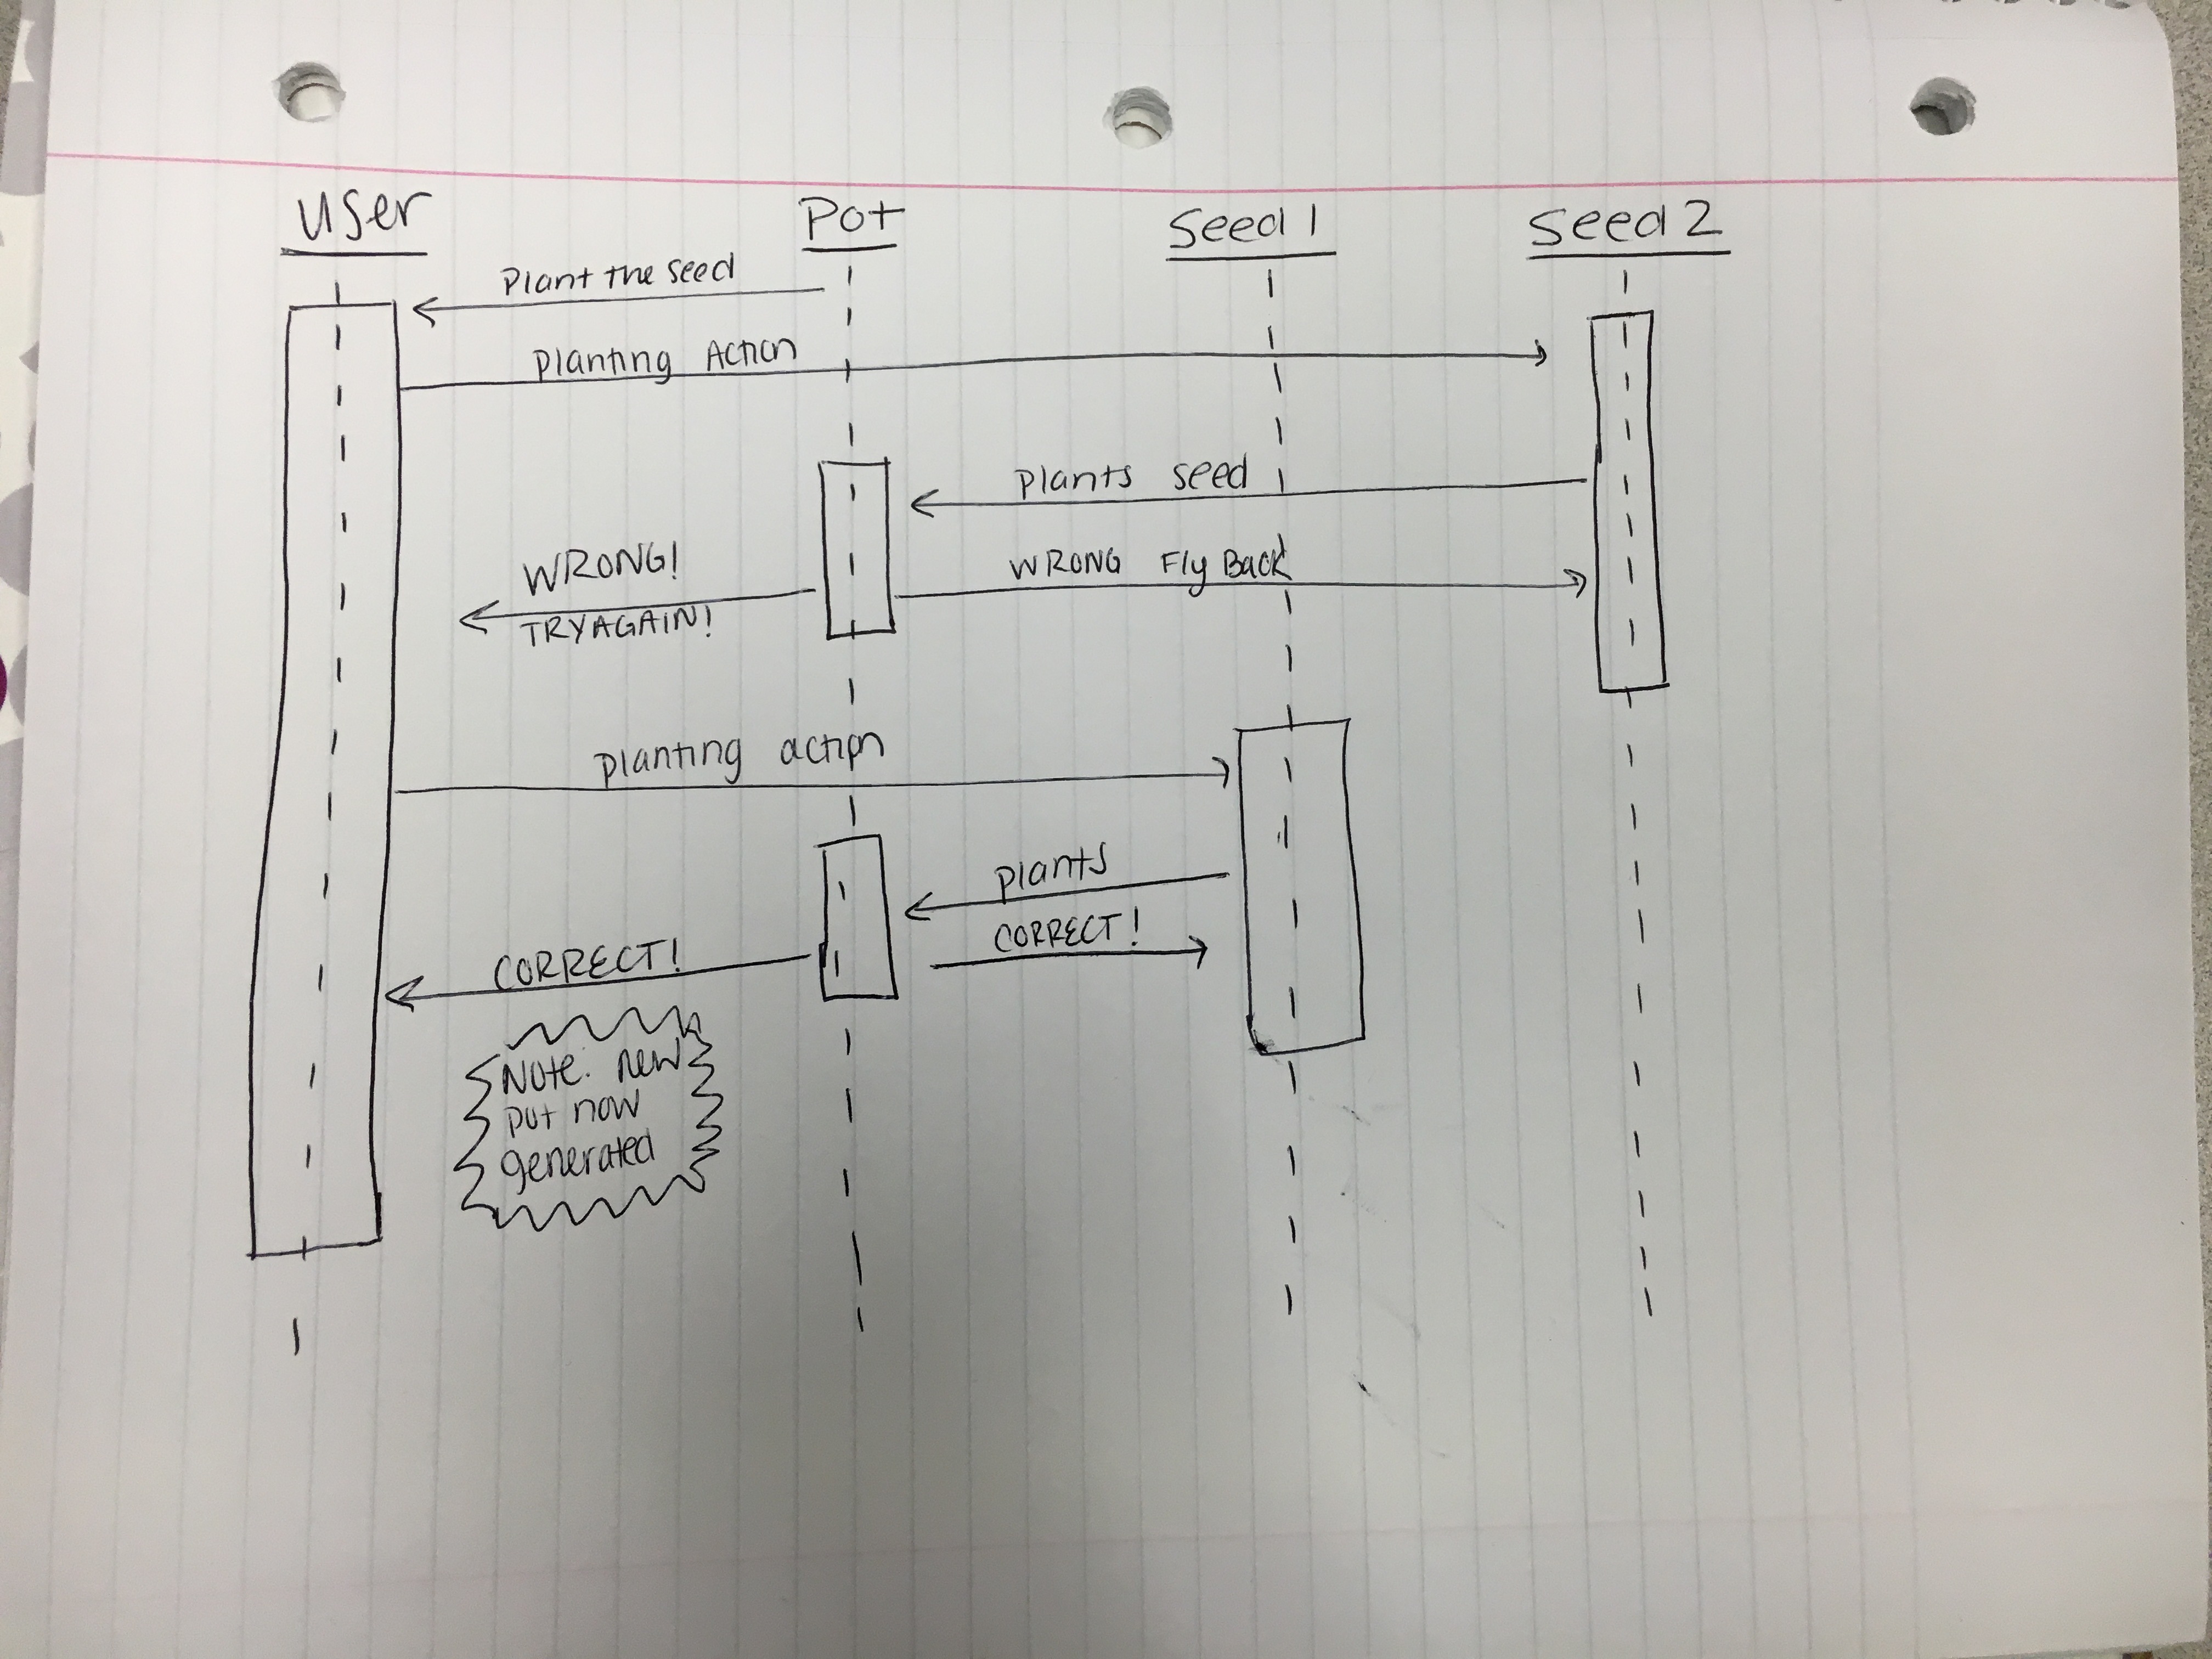 User Pot Seed 1 Seed 2
Plant the seed
Planting Action
Plants seed
WRONG!
TRY AGAIN!
WRONG Fly Back
Planting action
Plants
CORRECT!
CORRECT!
Note: new
pot now
generated